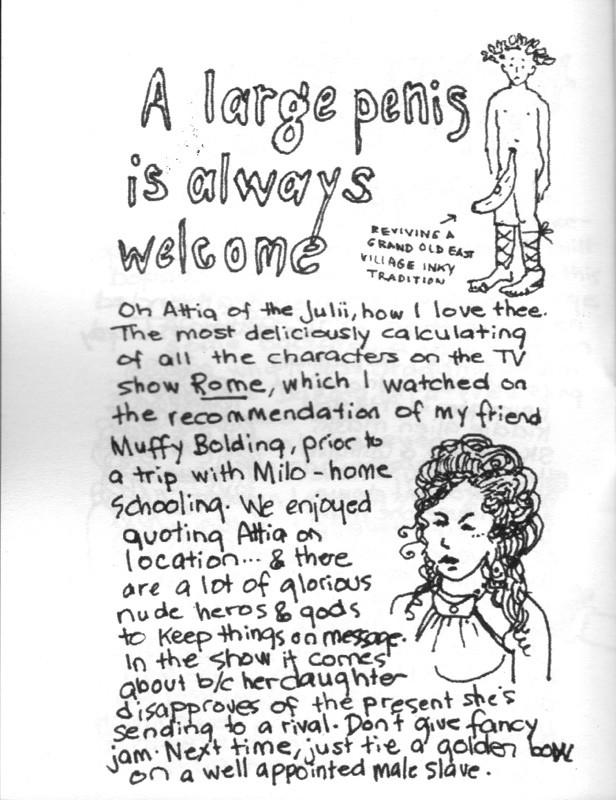 A large penis
is always
welcome
REVIVING A
GRAND OLD EAST
VILLAGE INKY
TRADITION
Oh Attia of the Julii, how I love thee.
The most deliciously calculating
of all the characters on the TV
show Rome, which I watched on
the recommendation of my friend
Muffy Bolding, prior to
a trip with Milo - home
schooling. We enjoyed
quoting Attia on
location... & there
are a lot of glorious
nude heros & gods
to keep things on message.
In the show it comes
about b/c her daughter
disapproves of the present she's
sending to a rival. Don't give fancy
jam. Next time, just tie a golden bow
on a well appointed male slave.